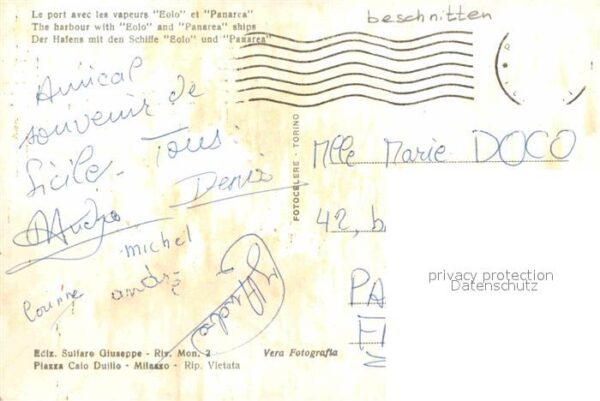 Le port avec les vapeurs "Eolo" et "Panarea"
The harbour with "Eolo" and "Panarea" ships
Der Hafens mit den Schiffe "Eolo" und "Panarea"
beschnitten
Amical
souvenir de
Sicile. Tous.
Denis
michel
andré
FOTOCELERE - TORINO
Mlle Marie DOCO
42, b
PA
privacy protection
Datenschutz
Ediz. Sulfaro Giuseppe - Riv. Mon. 2
Piazza Caio Duilio - Milazzo - Rip. Vietata
Vera Fotografia